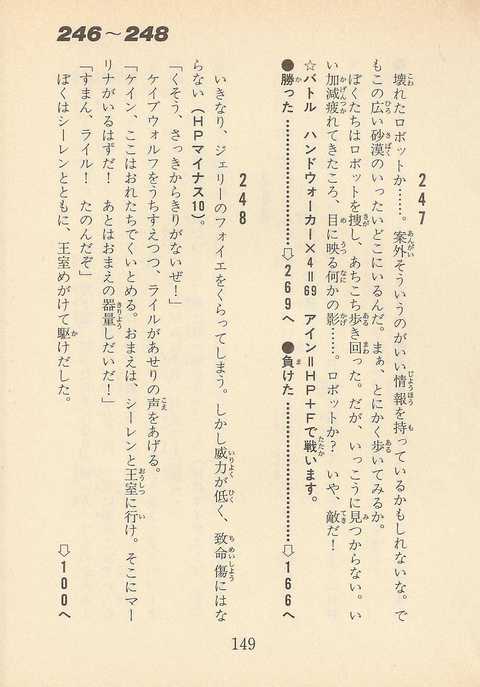 246〜248
247
壊れたロボットか……。案外そういうのがいい情報を持っているかもしれないな。で
もこの広い砂漠のいったいどこにいるんだ。まぁ、とにかく歩いてみるか。
ぼくたちはロボットを捜し、あちこち歩き回った。だが、いっこうに見つからない。い
い加減疲れてきたころ、目に映る何かの影……。ロボットか? いや、敵だ!
☆バトル ハンドウォーカー×4＝69 アイン＝HP＋Fで戦います。
●勝った……………………⇨269へ ●負けた……………………⇨166へ
248
いきなり、ジェリーのフォイエをくらってしまう。しかし威力が低く、致命傷にはな
らない（HPマイナス10）。
「くそう、さっきからきりがないぜ!」
ケイブウォルフをうちすえつつ、ライルがあせりの声をあげる。
「ケイン、ここはおれたちでくいとめる。おまえは、シーレンと王室に行け。そこにマー
リナがいるはずだ! あとはおまえの器量しだいだ!」
「すまん、ライル! たのんだぞ」
ぼくはシーレンとともに、王室めがけて駆けだした。
⇨100へ
149